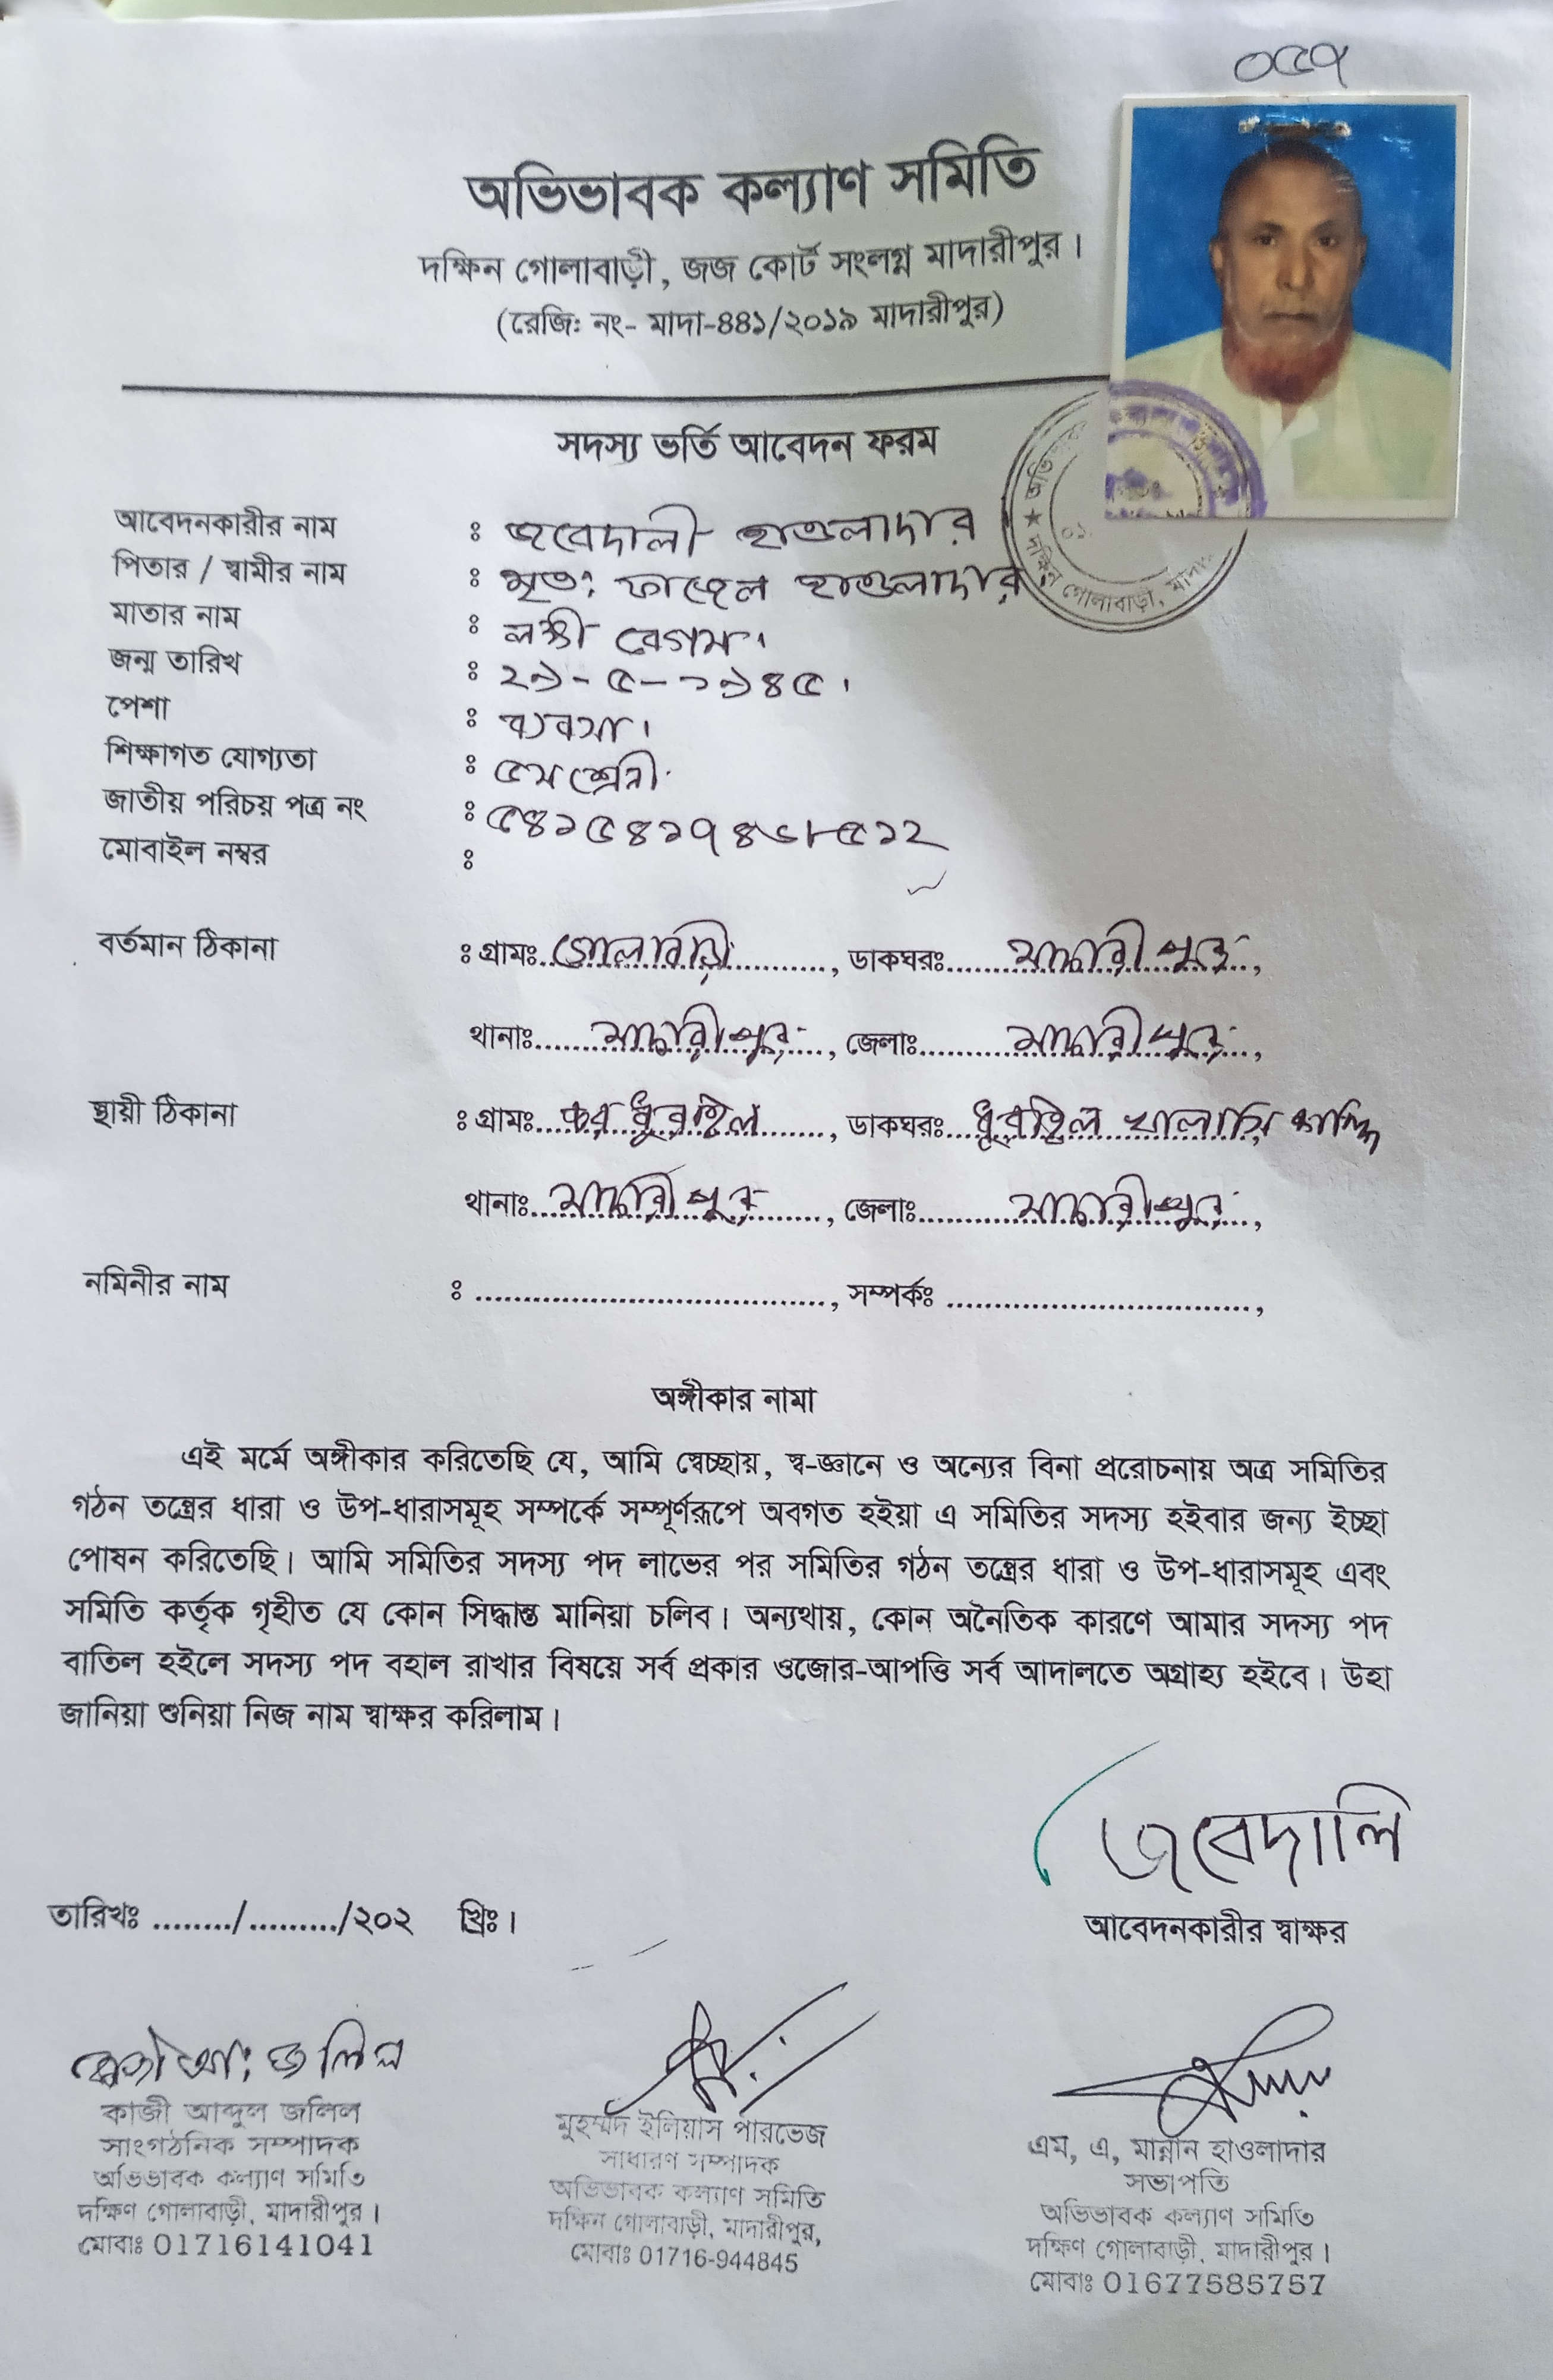 ০৫৭
অভিভাবক কল্যাণ সমিতি
দক্ষিন গোলাবাড়ী, জজ কোর্ট সংলগ্ন মাদারীপুর।
(রেজিঃ নং- মাদা-৪৪১/২০১৯ মাদারীপুর)
সদস্য ভর্তি আবেদন ফরম
আবেদনকারীর নাম ঃ জবেদালী হাওলাদার
পিতার / স্বামীর নাম ঃ মৃতঃ ফাজেল হাওলাদার
মাতার নাম ঃ লক্ষী বেগম।
জন্ম তারিখ ঃ ২৯-৫-১৯৪৫।
পেশা ঃ ব্যবসা।
শিক্ষাগত যোগ্যতা ঃ ৫ম শ্রেনী
জাতীয় পরিচয় পত্র নং ঃ ৫৪১৫৪১৭৪৬৮৫১২
মোবাইল নম্বর ঃ
দক্ষিন গোলাবাড়ী,
বর্তমান ঠিকানা ঃ গ্রামঃ গোলাবাড়ী, ডাকঘরঃ মাদারীপুর,
থানাঃ মাদারীপুর, জেলাঃ মাদারীপুর,
স্থায়ী ঠিকানা ঃ গ্রামঃ চর ধুরাইল, ডাকঘরঃ ধুরাইল খালাসি কান্দি
থানাঃ মাদারীপুর, জেলাঃ মাদারীপুর,
নমিনীর নাম ঃ ...................................., সম্পর্কঃ ................................,
অঙ্গীকার নামা
এই মর্মে অঙ্গীকার করিতেছি যে, আমি স্বেচ্ছায়, স্ব-জ্ঞানে ও অন্যের বিনা প্ররোচনায় অত্র সমিতির
গঠন তন্ত্রের ধারা ও উপ-ধারাসমূহ সম্পর্কে সম্পূর্ণরূপে অবগত হইয়া এ সমিতির সদস্য হইবার জন্য ইচ্ছা
পোষন করিতেছি। আমি সমিতির সদস্য পদ লাভের পর সমিতির গঠন তন্ত্রের ধারা ও উপ-ধারাসমূহ এবং
সমিতি কর্তৃক গৃহীত যে কোন সিদ্ধান্ত মানিয়া চলিব। অন্যথায়, কোন অনৈতিক কারণে আমার সদস্য পদ
বাতিল হইলে সদস্য পদ বহাল রাখার বিষয়ে সর্ব প্রকার ওজোর-আপত্তি সর্ব আদালতে অগ্রাহ্য হইবে। উহা
জানিয়া শুনিয়া নিজ নাম স্বাক্ষর করিলাম।
জবেদালি
তারিখঃ ......../........./২০২ খ্রিঃ।
আবেদনকারীর স্বাক্ষর
কাজী আঃ জলিল
কাজী আব্দুল জলিল
সাংগঠনিক সম্পাদক
অভিভাবক কল্যাণ সমিতি
দক্ষিণ গোলাবাড়ী, মাদারীপুর।
মোবাঃ 01716141041
মুহম্মদ ইলিয়াস পারভেজ
সাধারণ সম্পাদক
অভিভাবক কল্যাণ সমিতি
দক্ষিন গোলাবাড়ী, মাদারীপুর,
মোবাঃ 01716-944845
এম, এ, মান্নান হাওলাদার
সভাপতি
অভিভাবক কল্যাণ সমিতি
দক্ষিণ গোলাবাড়ী, মাদারীপুর।
মোবাঃ 01677585757